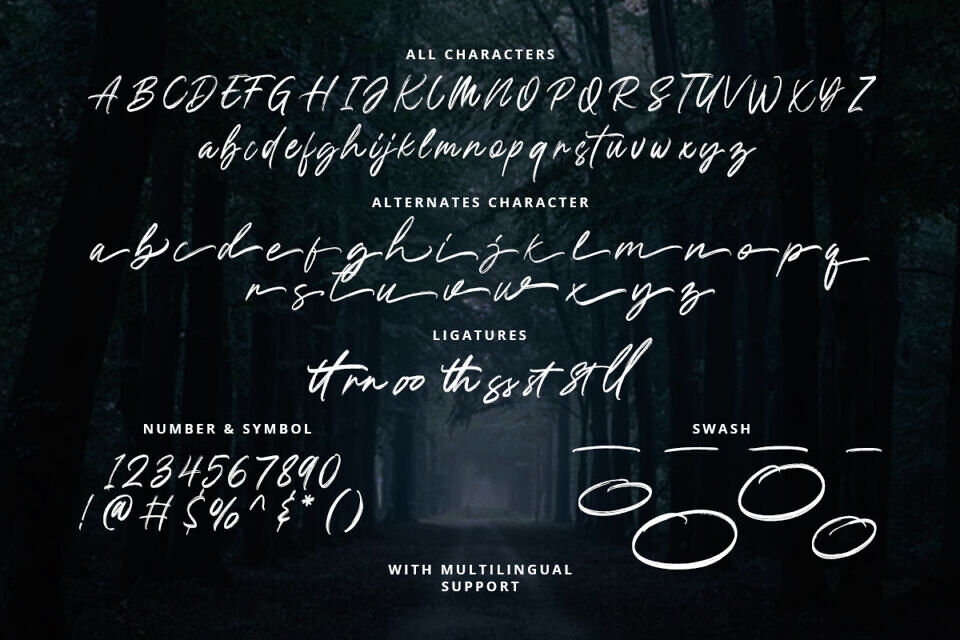 ALL CHARACTERS
A B C D E F G H I J K L M N O P Q R S T U V W X Y Z
a b c d e f g h i j k l m n o p q r s t u v w x y z
ALTERNATES CHARACTER
a b c d e f g h i j k l m n o p q
r s t u v w x y z
LIGATURES
tt rr oo th ss st St ll
NUMBER & SYMBOL
1 2 3 4 5 6 7 8 9 0
! @ # $ % ^ & * ( )
SWASH
WITH MULTILINGUAL
SUPPORT